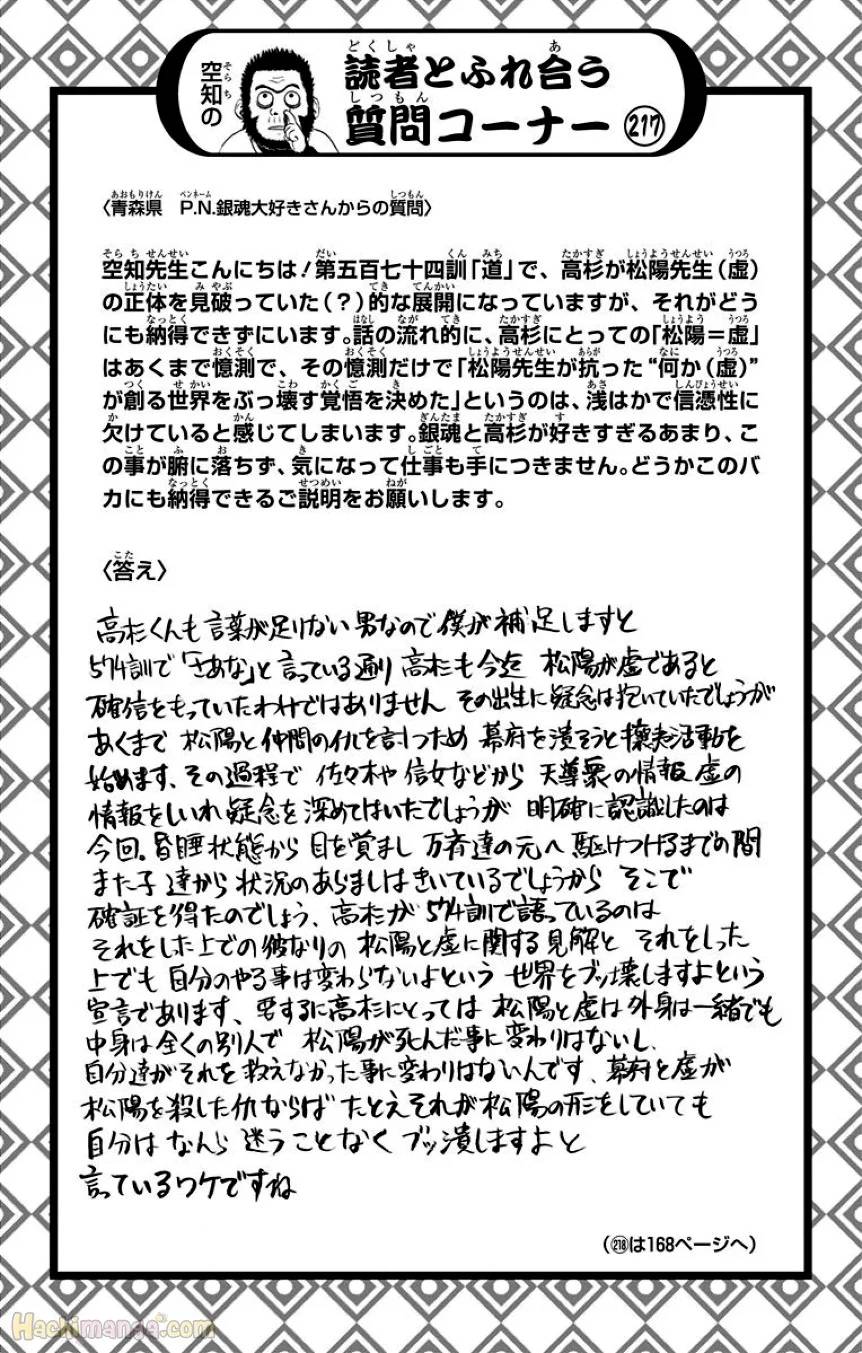 空知の
読者とふれ合う
質問コーナー 217
〈青森県 P.N.銀魂大好きさんからの質問〉
空知先生こんにちは！第五百七十四訓「道」で、高杉が松陽先生（虚）
の正体を見破っていた（？）的な展開になっていますが、それがどう
にも納得できずにいます。話の流れ的に、高杉にとっての「松陽＝虚」
はあくまで憶測で、その憶測だけで「松陽先生が抗った“何か（虚）”
が創る世界をぶっ壊す覚悟を決めた」というのは、浅はかで信憑性に
欠けていると感じてしまいます。銀魂と高杉が好きすぎるあまり、こ
の事が腑に落ちず、気になって仕事も手につきません。どうかこのバ
カにも納得できるご説明をお願いします。
〈答え〉
高杉くんも言葉が足りない男なので僕が補足しますと
574訓で「さあな」と言っている通り 高杉も今迄 松陽が虚であると
確信をもっていたわけではありません その出生に疑念は抱いていたでしょうが
あくまで 松陽と仲間の仇を討つため 幕府を潰そうと攘夷活動を
始めます、その過程で 佐々木や信女などから 天導衆の情報 虚の
情報をしいれ疑念を深めてはいたでしょうが 明確に認識したのは
今回。昏睡状態から目を覚まし 万斉達の元へ駆けつけるまでの間
また子達から状況のあらましはきいているでしょうから そこで
確証を得たのでしょう、高杉が574訓で語っているのは
それをした上での彼なりの 松陽と虚に関する見解と それをした
上でも 自分のやる事は変わらないよという 世界をブッ壊しますよという
宣言であります、要するに高杉にとっては 松陽と虚は外身は一緒でも
中身は全くの別人で 松陽が死んだ事に変わりはないし、
自分達がそれを救えなかった事に変わりはないんです、幕府と虚が
松陽を殺した仇ならば たとえそれが松陽の形をしていても
自分は なんら 迷うことなく ブッ潰しますよと
言っているワケですね
（218は168ページへ）
Hachimanga.com